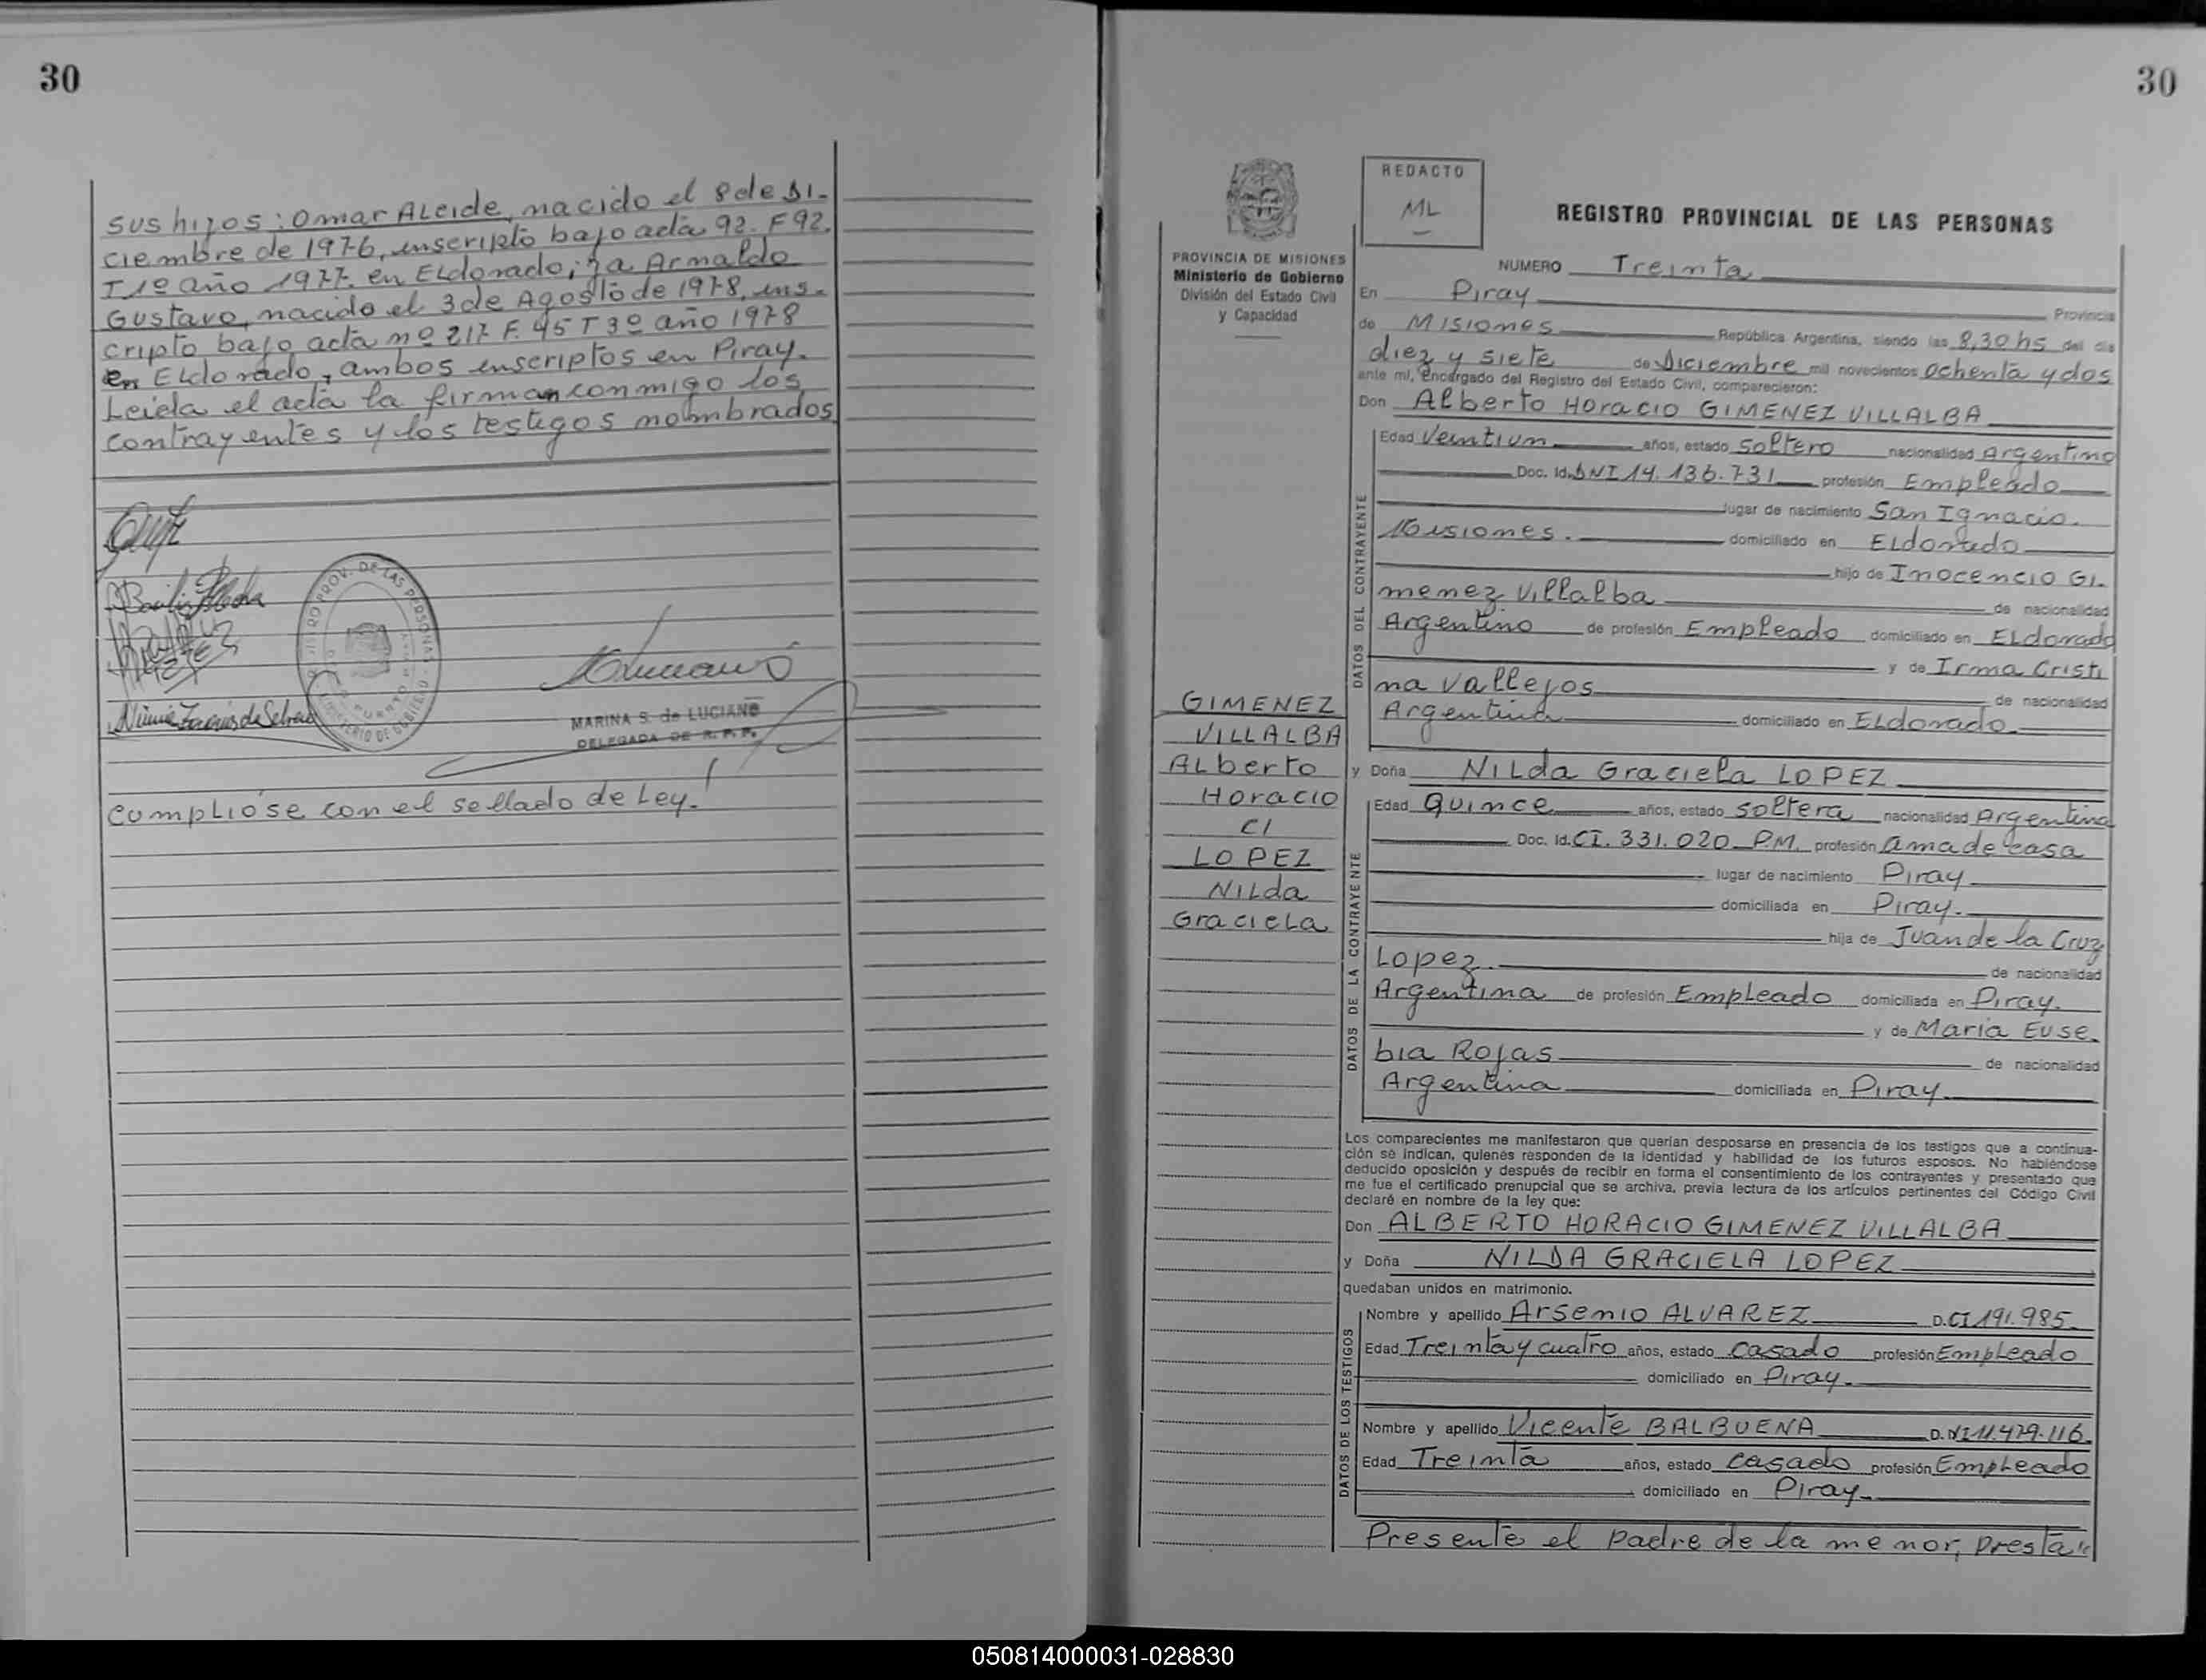 30
sus hijos: Omar ALcide, nacido el 8 de Di-
ciembre de 1976, inscripto bajo acta 92. F 92.
T 1º año 1977. en ELdorado; y a Arnaldo
Gustavo, nacido el 3 de Agosto de 1978, ins-
cripto bajo acta nº 217 F. 45 T 3º año 1978
en ELdorado, ambos inscriptos en Piray.
Leida el acta la firman conmigo los
contrayentes y los testigos nombrados
REGISTRO PROV. DE LAS PERSONAS
MINISTERIO DE GOBIERNO
MARINA S. de LUCIANO
DELEGADA DE R. P. P.
cumplióse con el sellado de Ley.
30
REDACTO
ML
REGISTRO PROVINCIAL DE LAS PERSONAS
PROVINCIA DE MISIONES
Ministerio de Gobierno
División del Estado Civil
y Capacidad
NUMERO Treinta
En Piray Provincia
de Misiones República Argentina, siendo las 8,30 hs del día
diez y siete de Diciembre mil novecientos ochenta y dos
ante mí, Encargado del Registro del Estado Civil, comparecieron:
Don Alberto Horacio GIMENEZ VILLALBA
DATOS DEL CONTRAYENTE
Edad Veintiun años, estado soltero nacionalidad Argentino
Doc. Id. DNI 14.136.731 profesión Empleado
lugar de nacimiento San Ignacio.
Misiones. domiciliado en ELdorado
hijo de Inocencio Gi-
menez Villalba de nacionalidad
Argentino de profesión Empleado domiciliado en ELdorado
y de Irma Cristi
na Vallejos de nacionalidad
Argentina domiciliado en ELdorado
GIMENEZ
VILLALBA
ALberto
Horacio
C/
LOPEZ
NILda
GracieLa
y Doña NILda Graciela LOPEZ
DATOS DE LA CONTRAYENTE
Edad Quince años, estado soltera nacionalidad Argentina
Doc. Id. CI. 331.020 P.M. profesión ama de casa
lugar de nacimiento Piray
domiciliada en Piray.
hija de Juan de la Cruz
Lopez. de nacionalidad
Argentina de profesión Empleado domiciliada en Piray.
y de Maria Euse-
bia Rojas de nacionalidad
Argentina domiciliada en Piray
Los comparecientes me manifestaron que querían desposarse en presencia de los testigos que a continua-
ción se indican, quienes responden de la identidad y habilidad de los futuros esposos. No habiéndose
deducido oposición y después de recibir en forma el consentimiento de los contrayentes y presentado que
me fue el certificado prenupcial que se archiva, previa lectura de los artículos pertinentes del Código Civil
declaré en nombre de la ley que:
Don ALBERTO HORACIO GIMENEZ VILLALBA
y Doña NILDA GRACIELA LOPEZ
quedaban unidos en matrimonio.
DATOS DE LOS TESTIGOS
Nombre y apellido Arsenio ALVAREZ D. CI 191.985
Edad Treinta y cuatro años, estado casado profesión Empleado
domiciliado en Piray
Nombre y apellido Vicente BALBUENA D. NI 11.479.116
Edad Treinta años, estado casado profesión Empleado
domiciliado en Piray
Presente el padre de la menor, presta
050814000031-028830